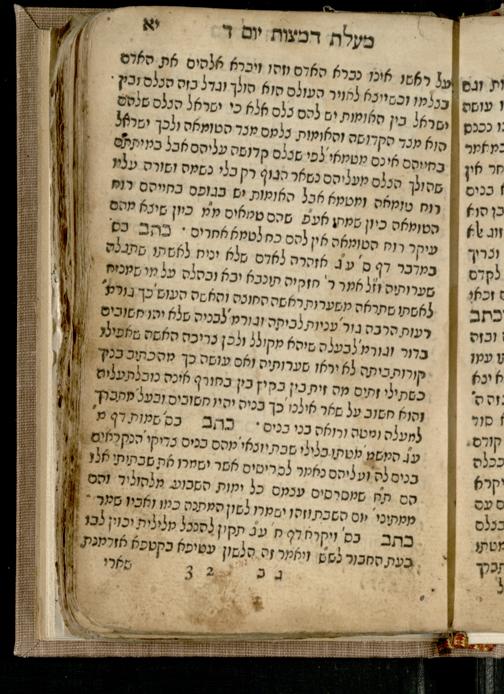 מעלת המצות יום ד יא
על ראשו אינו נברא האדם וזהו ויברא אלהים את האדם
בצלמו וכשיוצא לאויר העולם הוא הולך וגדל בזה הצלם ובין
ישראל בין האומות יש להם צלם אלא כי ישראל הצלם שלהם
הוא מצד הקדושה והאומות צלמם מצד הטומאה ולכך ישראל
בחייהם אינם מטמאי' לפי שצלם קדושה עליהם אבל במיתתם
שהולך הצלם מעליהם נשאר הגוף ריק בלי נשמה ושורה עליו
רוח טומאה ומטמא אבל האומות יש בגופם בחייהם רוח
הטומאה כיון שמתו אע"פ שהם טמאים מ"מ כיון שיצא מהם
עיקר רוח הטומאה אין להם כח לטמא אחרים · כתב בס'
במדבר דף ע"ג אזהרה לאדם שלא יניח לאשתו שתגלה
שערותיה וז"ל אמר ר' חזקיה תונבא יבא ובהלה על מי שמניח
לאשתו שתראה משערות ראשה החוצה והאשה העוש' כך גורמ'
רעות הרבה גור' עניות לביתה וגורמ' לבניה שלא יהו חשובים
בדור וגורמ' לבעלה שיהא מקולל ולכן צריכה האשה שאפילו
קורות ביתה לא יראו שערותיה ואם עושה כך מה כתיב בניך
כשתילי זתים מה זית בין בקיץ בין בחורף אינה נובלת עליה
והוא חשוב על שאר אילנו' כך בניה יהיו חשובים ובעל' מתברך
למעלה ומטה ורואה בני בנים · כתב בס' שמות דף
ע"ג המשמ' מטתו בלילי שבת יוצאי' מהם בנים צדיקי' הנקראים
בנים לה' ועליהם נאמר לסריסים אשר ישמרו את שבתותי אלו
הם ת"ח שמסרסים עצמם כל ימות השבוע מלהוליד והם
ממתיני' יום השבת וזהו ישמרו לשון המתנה כמו ואביו שמר
כתב בס' ויקרא דף ח' ע"ג תקון להנצל מלילית יכוין לבו
בעת החבור לשם ויאמר זה הלשון עטיפא בקטפא אזדמנת
ג ב 3 2 שארי